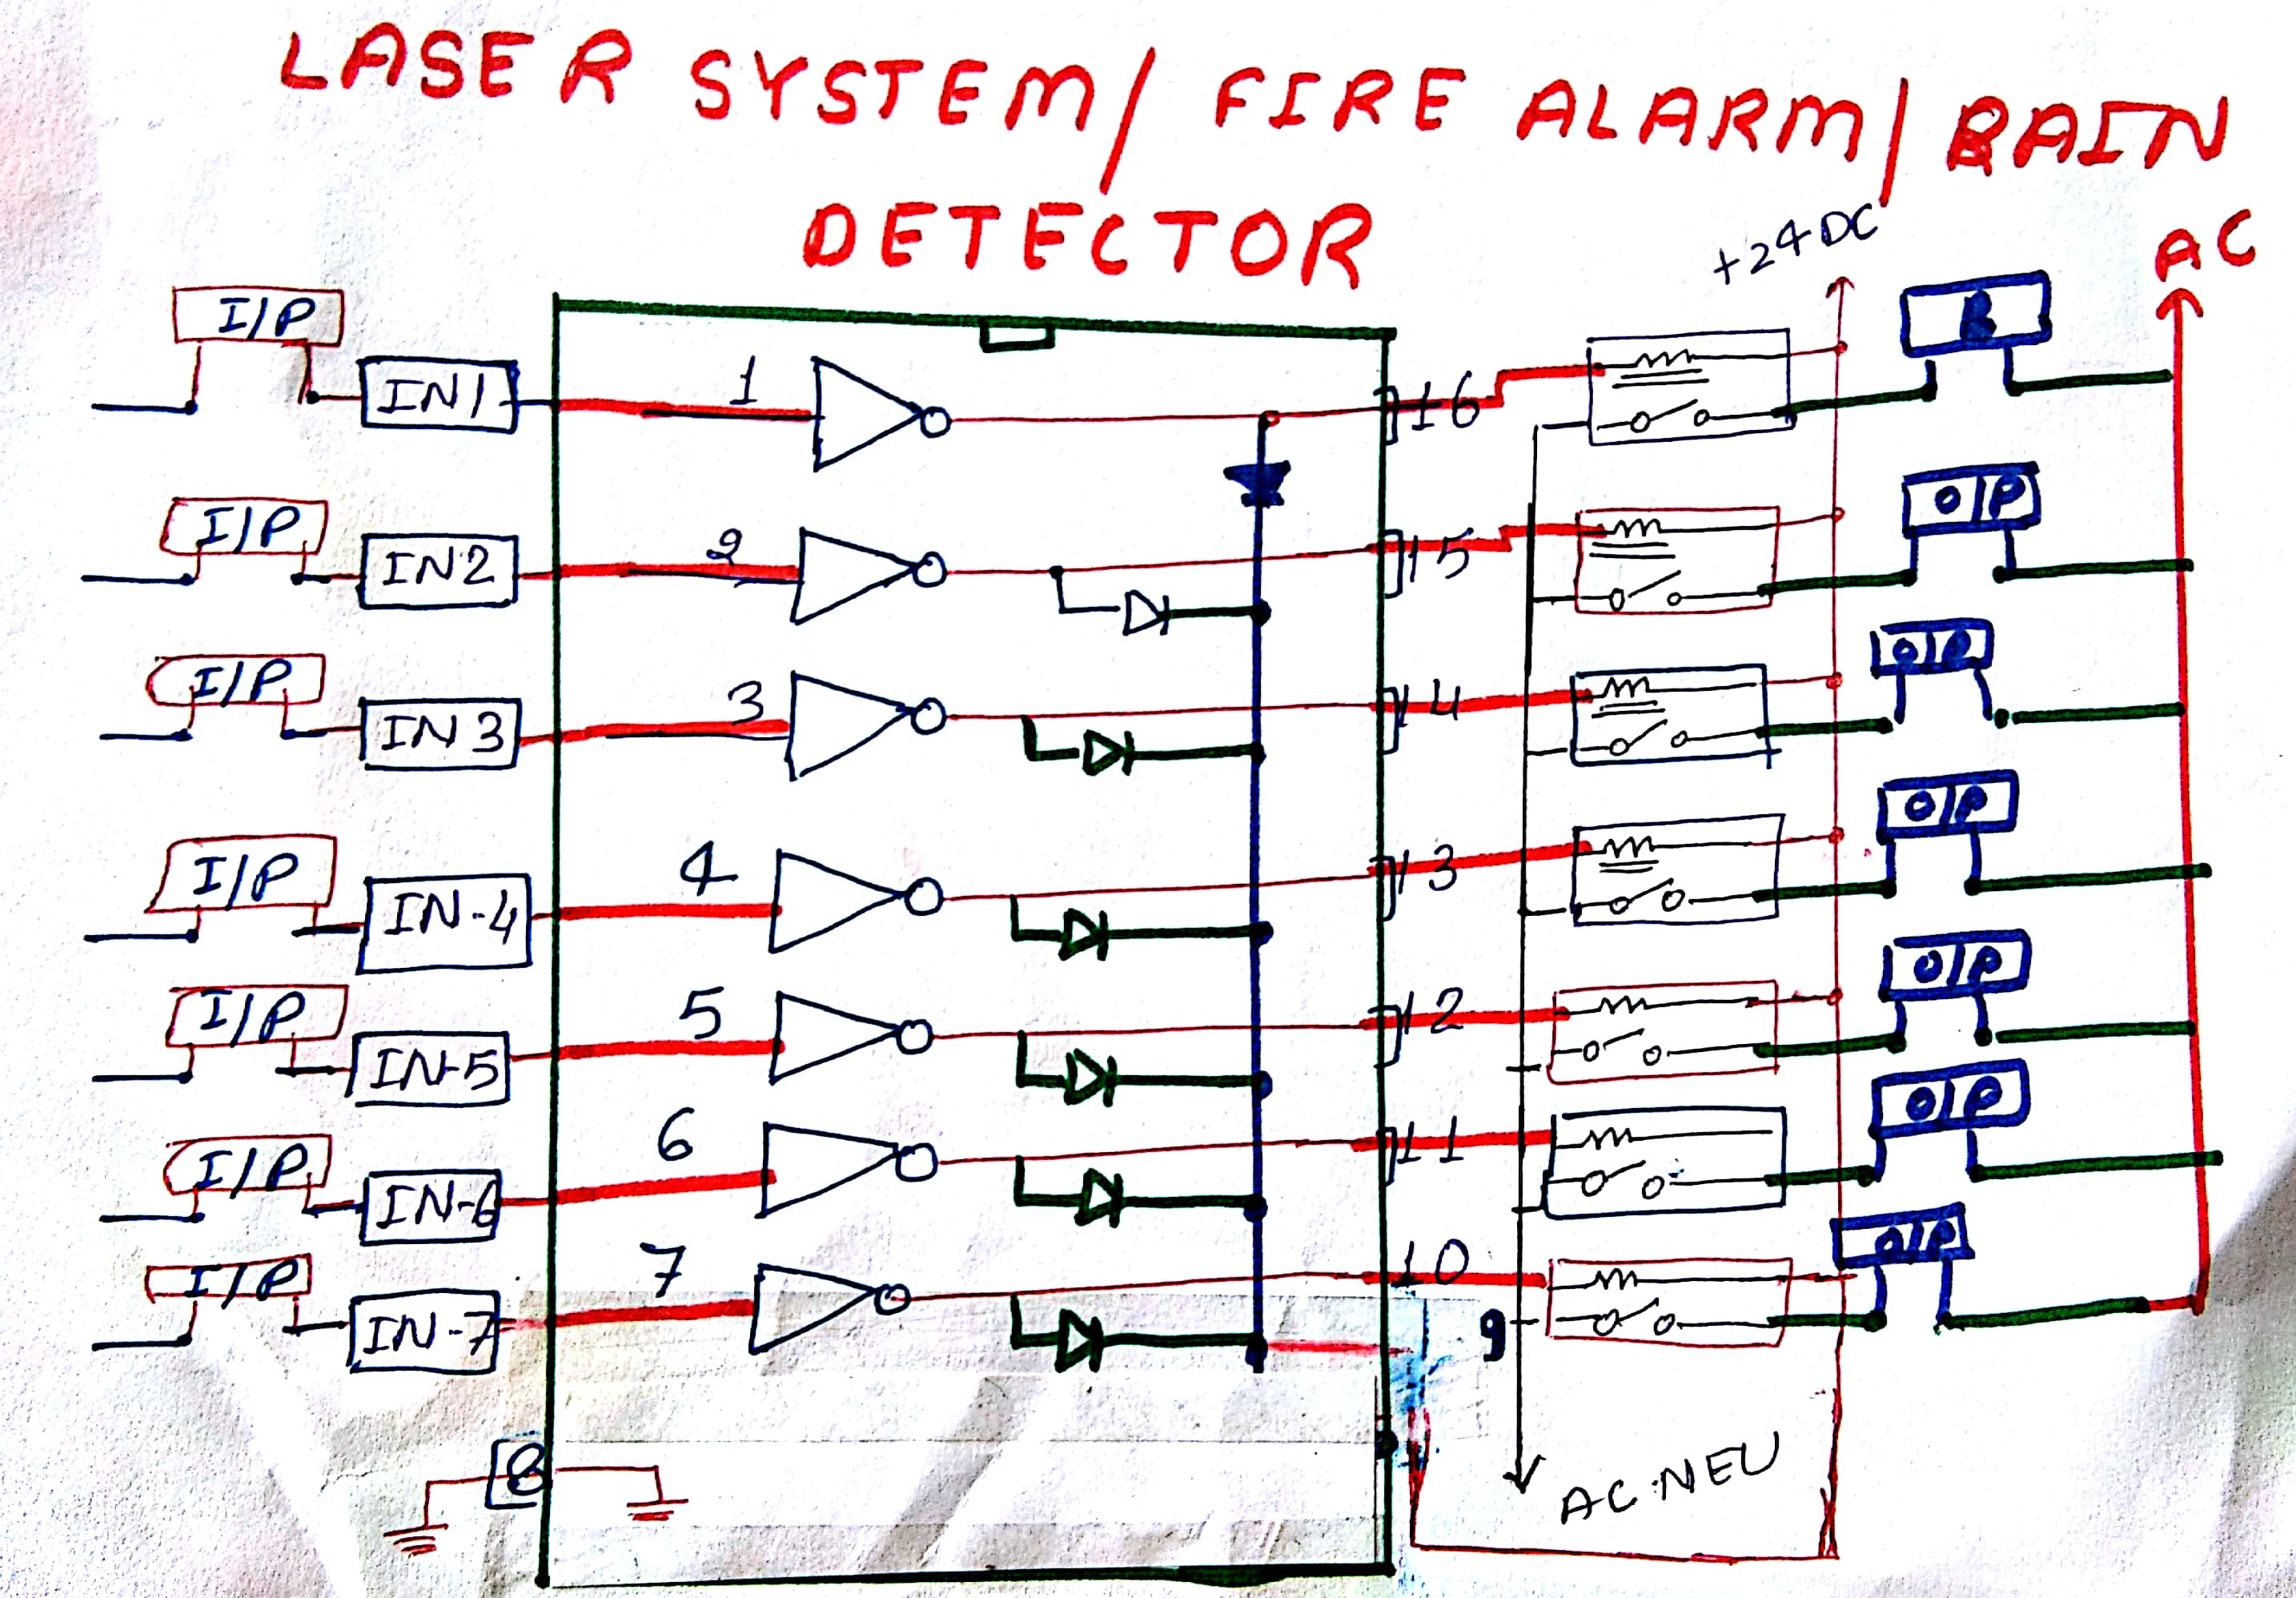 LASER SYSTEM/ FIRE ALARM/ RAIN
DETECTOR
+24 DC
AC
I/P
IN1
1
16
I/P
IN2
2
15
O/P
I/P
IN3
3
14
O/P
I/P
IN-4
4
13
O/P
I/P
IN-5
5
12
O/P
I/P
IN-6
6
11
O/P
I/P
IN-7
7
10
O/P
9
8
AC.NEU